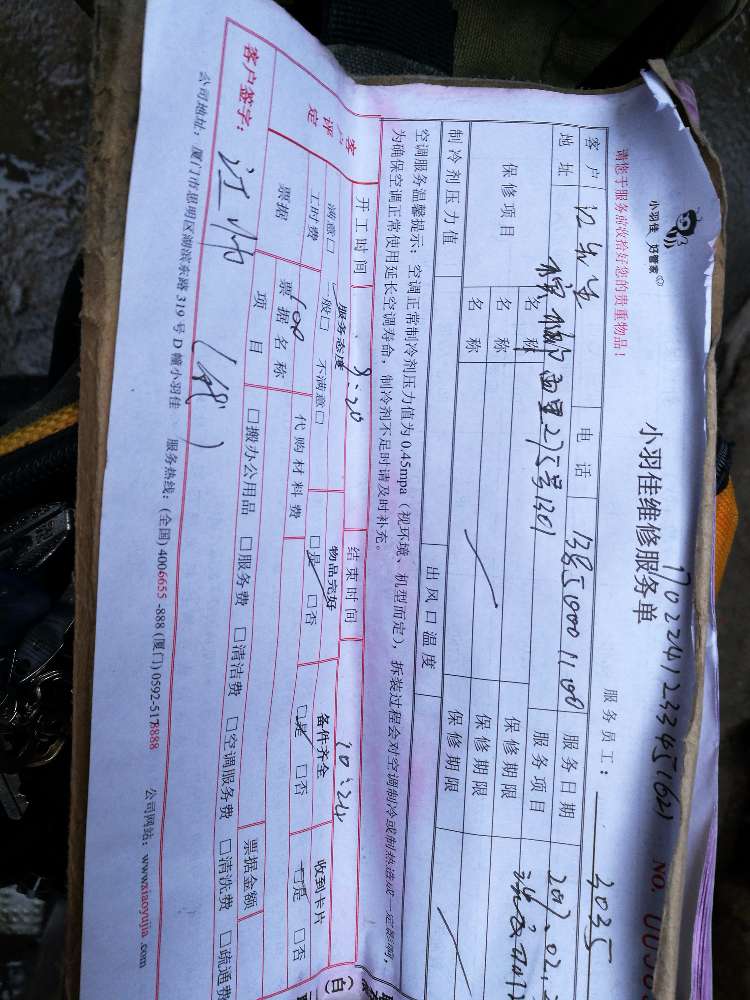 小羽佳 好管家
小羽佳维修服务单
170224123345(62)
NO. 003
请您于服务前收拾好您的贵重物品！
服务员工： 3035
客户 江先生 电话 服务日期
地址 槟榔西里275号1301 服务项目
保修项目 名称 保修期限
名称 保修期限
名称 保修期限
制冷剂压力值 出风口温度
空调服务温馨提示：空调正常制冷剂压力值为0.45mpa（视环境、机型而定），拆装过程会对空调制冷或制热造成一定影响，
为确保空调正常使用延长空调寿命，制冷剂不足时请及时补充。
开工时间 9:20 结束时间 10:24
客户评定 服务态度 物品完好 备件齐全 收到卡片
满意□ 一般□ 不满意□ □是 □否 □是 □否 □是 □否
工时费 100 代购材料费
票据 票据名称 票据金额
项目 □搬办公用品 □服务费 □清洁费 □空调服务费 □清洗费 □疏通费
客户签字：
公司地址：厦门市思明区湖滨东路319号D幢小羽佳 服务热线：(全国) 4006655-888 (厦门) 0592-5178888 公司网站：www.xiaoyujia.com
(白)